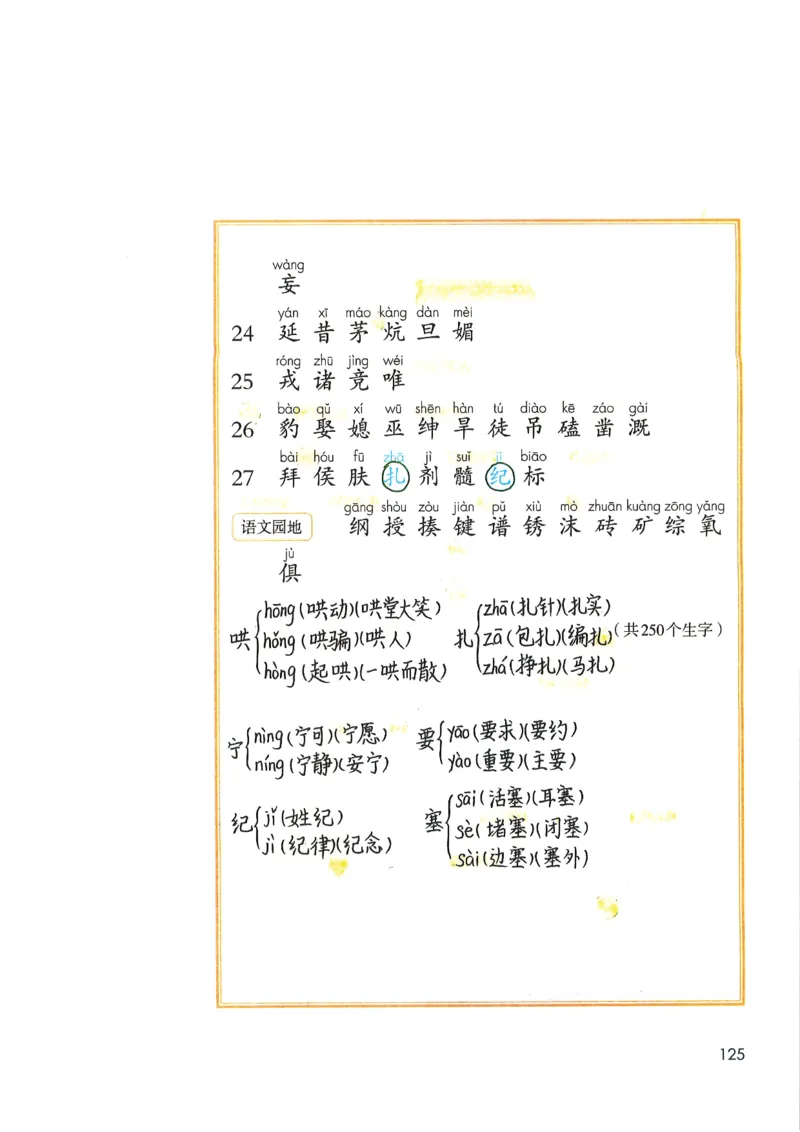 wàng
妄
yán xī máo kàng dàn mèi
24 延 昔 茅 炕 旦 媚
róng zhū jìng wéi
25 戎 诸 竞 唯
bào qǔ xí wū shēn hàn tú diào kē záo gài
26 豹 娶 媳 巫 绅 旱 徒 吊 磕 凿 溉
bài hóu fū zhā jì suǐ jǐ biāo
27 拜 侯 肤 扎 剂 髓 纪 标
gāng shòu zòu jiàn pǔ xiù mò zhuān kuàng zōng yǎng
语文园地 纲 授 揍 键 谱 锈 沫 砖 矿 综 氧
jù
俱
哄 hōng (哄动)(哄堂大笑)
hǒng (哄骗)(哄人)
hòng (起哄)(一哄而散)
扎 zhā (扎针)(扎实)
zā (包扎)(编扎)
zhá (挣扎)(马扎)
(共250个生字)
宁 nìng (宁可)(宁愿)
níng (宁静)(安宁)
要 yāo (要求)(要约)
yào (重要)(主要)
纪 jǐ (姓纪)
jì (纪律)(纪念)
塞 sāi (活塞)(耳塞)
sè (堵塞)(闭塞)
sài (边塞)(塞外)
125